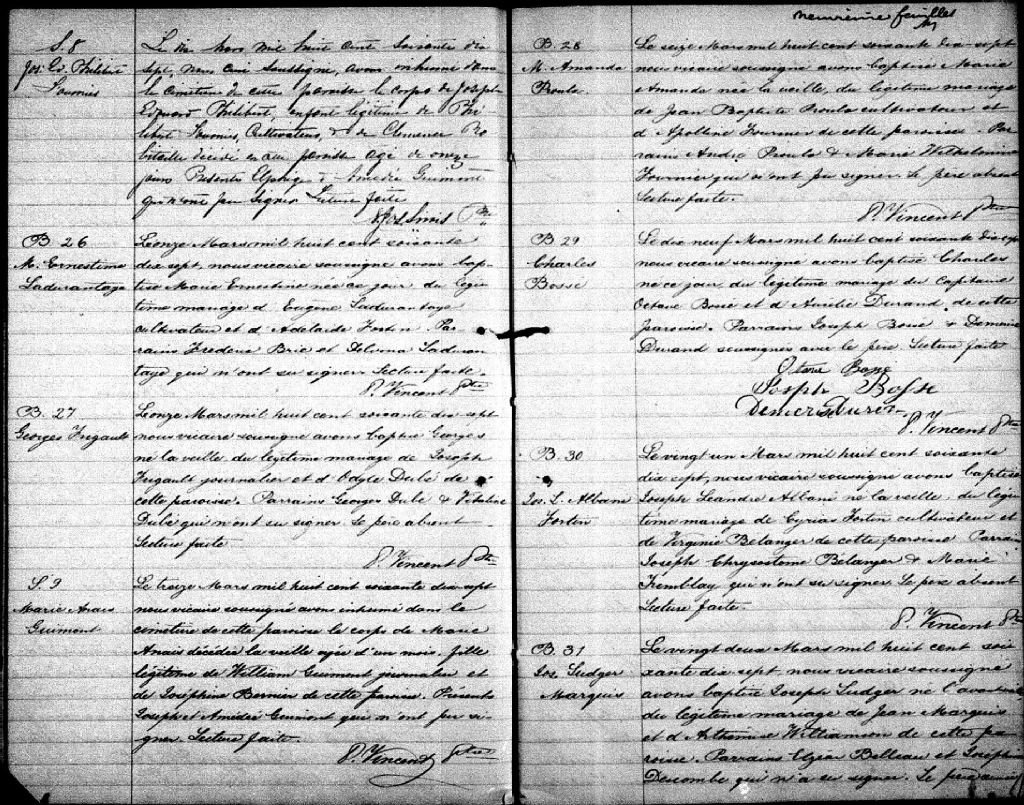 S. 8
Jos. Ed. Philibert
Fournier
Le dix Mars mil huit cent soixante dix
sept, nous curé soussigné, avons inhumé dans
le cimetière de cette paroisse le corps de Joseph
Edouard Philibert, enfant légitime de Phi
libert Fournier, Cultivateur, & de Clemence Ro
bitaille décédé en cette paroisse agé de onze
jours Présents & Amédée Guimond
qui n'ont pu signer Lecture faite
Ptre
B. 26
M. Ernestine
Ladurantaye
Le onze Mars mil huit cent soixante
dix sept, nous vicaire soussigné avons bap-
tisé Marie Ernestine née ce jour du légi
time mariage d'Eugène Ladurantaye
cultivateur et d'Adelaide Fortin. Par-
rains Frederic Brie et Delvina Laduran
taye qui n'ont su signer. Lecture faite.
P. Vincent Ptre
B. 27
Georges Frigault
Le onze Mars mil huit cent soixante dix sept
nous vicaire soussigné avons baptisé Georges
né la veille du légitime mariage de Joseph
Frigault journalier et d'Odyle Dubé de
cette paroisse. Parrains Georges Dubé & Vitaline
Dubé qui n'ont su signer. Le père absent
Lecture faite.
P. Vincent Ptre
S. 9
Marie Anais
Guimont
Le treize Mars mil huit cent soixante dix sept
nous vicaire soussigné avons inhumé dans le
cimetière de cette paroisse le corps de Marie
Anais décédée la veille agée d'un mois, fille
légitime de William Guimont journalier et
de Joséphine Bernier de cette paroisse. Présents
Joseph et Amédée Guimont qui n'ont pu si-
gner. Lecture faite.
P. Vincent Ptre
neuvième feuillet
B. 28
M. Amanda
Proulx
Le seize Mars mil huit cent soixante dix sept
nous vicaire soussigné avons baptisé Marie
Amanda née la veille, du légitime mariage
de Jean Baptiste Proulx cultivateur et
d'Apolline Fournier de cette paroisse. Par
rains André Proulx & Marie Wilhelmine
Fournier qui n'ont pu signer. Le père absent
Lecture faite.
P. Vincent Ptre
B. 29
Charles
Bossé
Le dix neuf Mars mil huit cent soixante dix sept
nous vicaire soussigné avons baptisé Charles
né ce jour du légitime mariage du capitaine
Octave Bossé et d'Aurélie Durand de cette
paroisse. Parrains Joseph Bossé &
Durand soussignés avec le père. Lecture faite
Bossé
Joseph Bossé
P. Vincent Ptre
B. 30
Jos. L. Albani
Fortin
Le vingt un Mars mil huit cent soixante
dix sept, nous vicaire soussigné avons baptisé
Joseph Léandre Albani né la veille du légi
time mariage de Cyrias Fortin cultivateur et
de Virginie Bélanger de cette paroisse Parrains
Joseph Chrysostome Bélanger & Marie
Tremblay qui n'ont su signer. Le père absent
Lecture faite.
P. Vincent Ptre
B. 31
Jos. Ludger
Marquis
Le vingt deux Mars mil huit cent soi
xante dix sept nous vicaire soussigné
avons baptisé Joseph Ludger né l'avant
du légitime mariage de Jean Marquis
et d'Arthémise Williamson de cette pa
roisse. Parrains Elzéar Belleau et Joséphine
Descombe qui n'a su signer. Le père